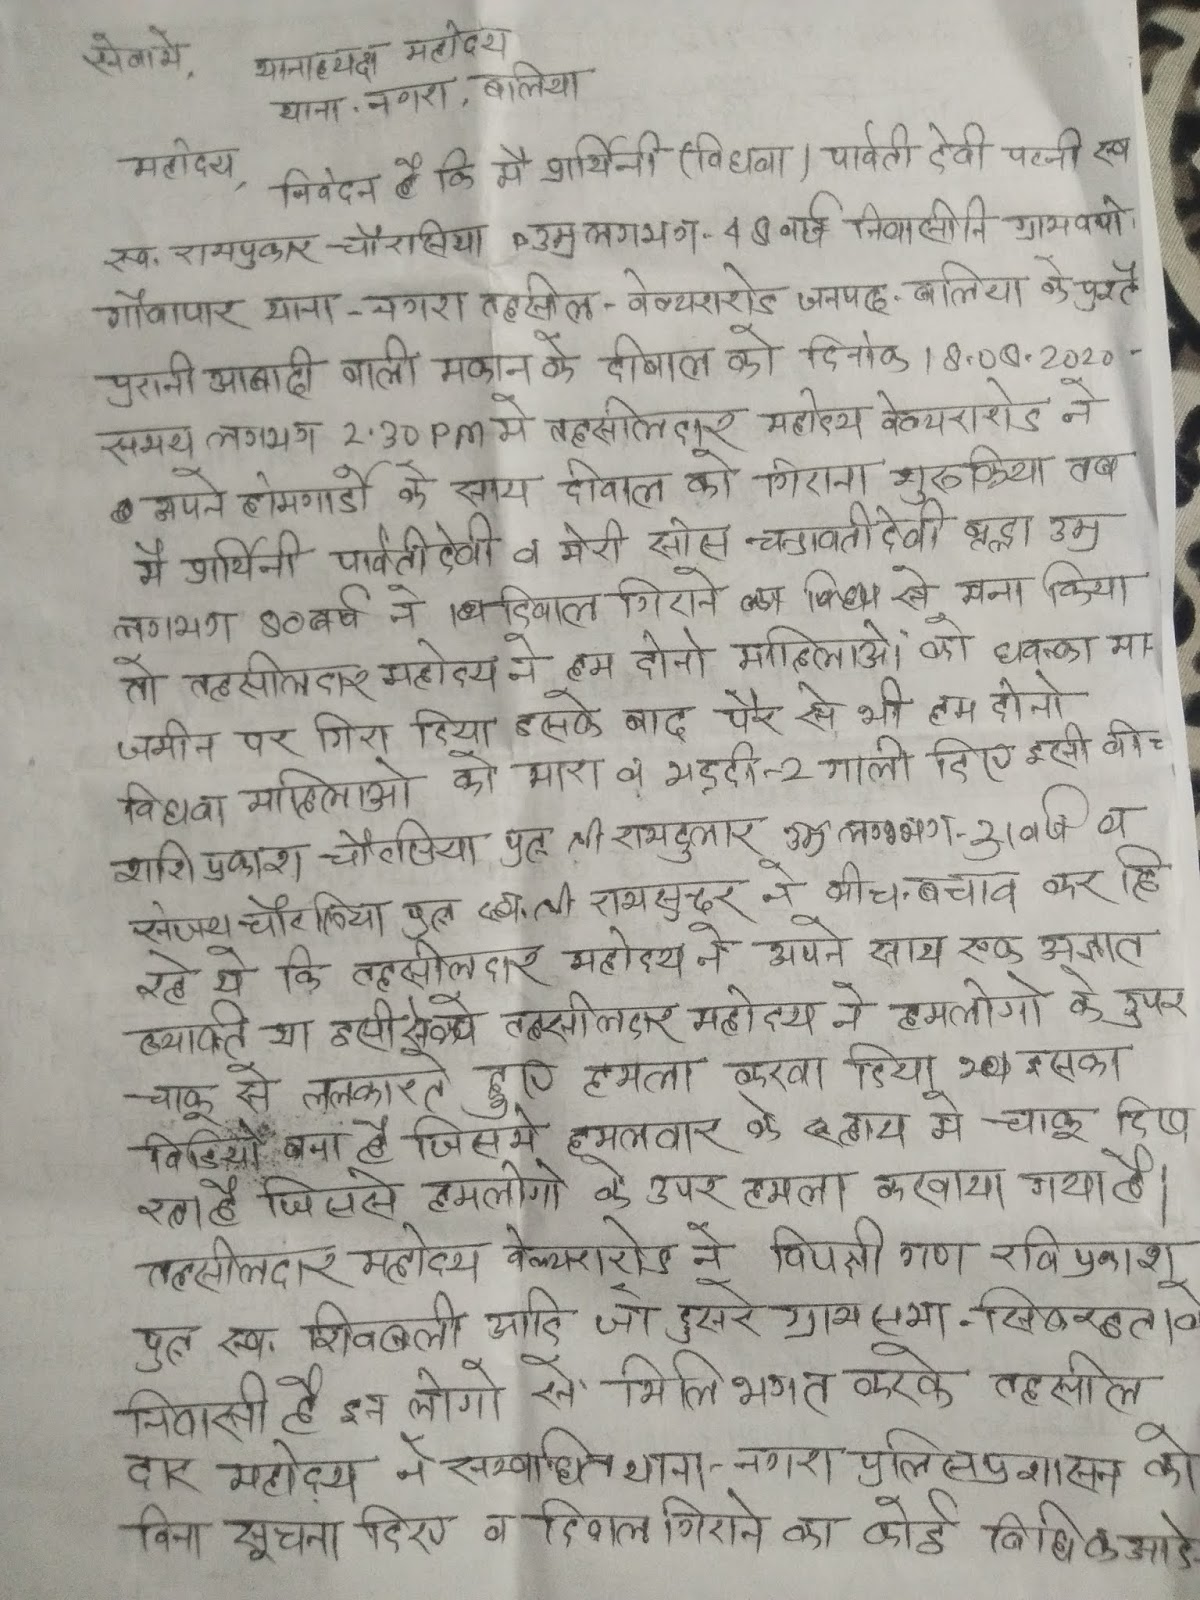 सेवामे, थानाध्यक्ष महोदय
थाना-नगरा, बालिया
महोदय,
निवेदन है कि मै प्रार्थिनी (विधवा) पार्वती देवी पत्नी स्व
स्व. रामपुकार चौरासिया उम्र लगभग-48 वर्ष निवासीनि ग्राम
गौवापार थाना-नगरा तहसील-वेल्थरारोड जनपद-बालिया के पुश्तै
पुरानी आबादी वाली मकान के दीवाल को दिनांक 18.08.2020-
समय लगभग 2.30 PM मे तहसीलदार महोदय वेल्थरारोड ने
अपने होमगार्डो के साथ दीवाल को गिराना शुरू किया तब
मै प्रार्थिनी पार्वती देवी व मेरी सास चन्द्रावती देवी उम्र
लगभग 80 वर्ष ने दिवाल गिराने से मना किया
तो तहसीलदार महोदय ने हम दोनो माहिलाओ को धक्का मा-
जमीन पर गिरा दिया इसके बाद पैर से भी हम दोनो
विधवा माहिलाओ को मारा व भद्दी-2 गाली दिए इसी बीच
शाशि प्रकाश चौरासिया पुत्र श्री रामदुलार उम्र लगभग-31 वर्ष व
संजय चौरासिया पुत्र स्व. श्री रामसुन्दर ने बीच-बचाव कर हि
रहे थे कि तहसीलदार महोदय ने अपने साथ एक अज्ञात
व्याक्ति था तहसीलदार महोदय ने हमलोगो के उपर
चाकू से ललकारते हुए हमला करवा दिया इसका
विडियो बना है जिसमे हमलवार के हाथ मे चाकू दिख
रहा है जिससे हमलोगो के उपर हमला करवाया गया है।
तहसीलदार महोदय वेल्थरारोड ने विपक्षी गण रवि प्रकाश
पुत्र स्व. शिवबली आदि जो दुसरे ग्राम सभा-सिकरहता के
निवासी है इन लोगो से मिलि भगत करके तहसील
दार महोदय ने सम्बाधित थाना-नगरा पुलिस प्रशासन को
बिना सूचना दिए व दिवाल गिराने का कोई विधिक आदे-